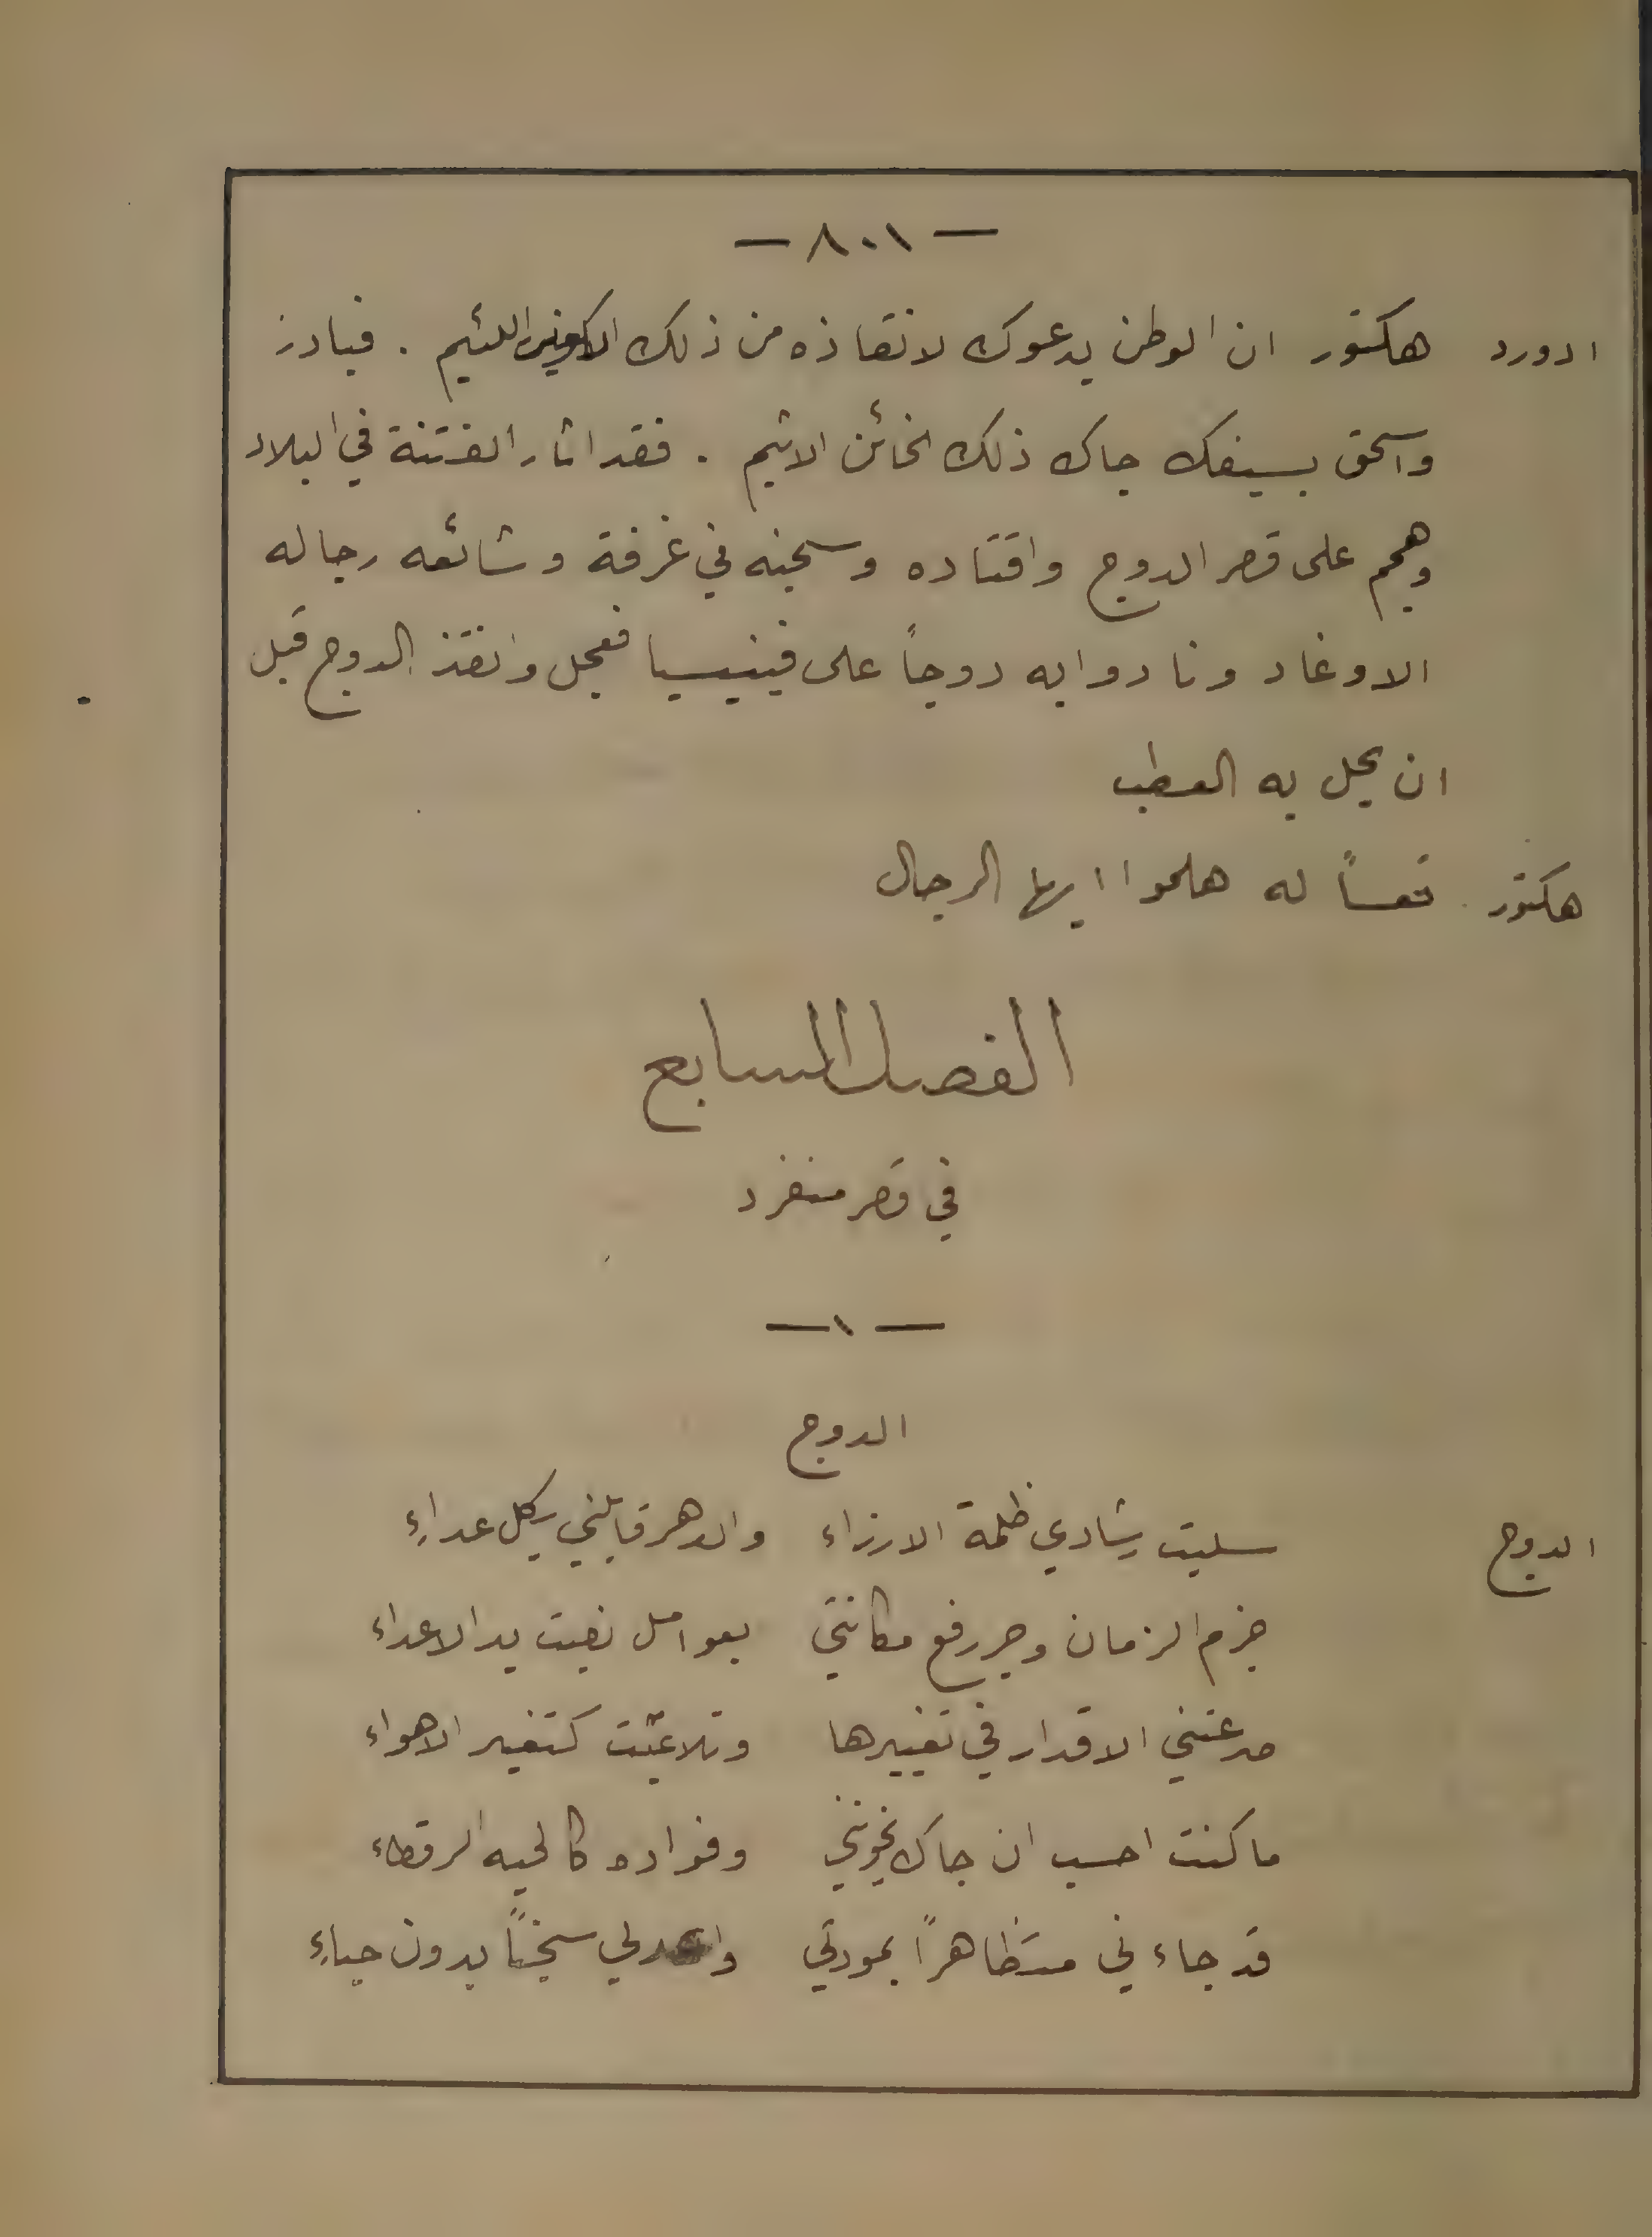 — ٨٠١ —
ادورد هكتور ان الوطن يدعوك لانقاذه من ذلك اللئيم . فبادر
واسحق بسيفك جاك ذلك الخائن الاثيم . فقد اثار الفتنة في البلاد
وهجم على قصر الدوج واقتاده وسجنه في غرفة وشائعه رجاله
الاوغاد ونادوا به دوجاً على فينيسيا فعجل وانقذ الدوج قبل
ان يحل به العطب
هكتور تعساً له هلموا ايها الرجال
الفصل السابع
في قصر منفرد
— ١ —
الدوج
الدوج سلبت رشادي ظلمة الارزاء والدهر قابلني بكل عداءِ
جزم الزمان وجر رفع مكانتي بعوامل نصبت يد الاعداء
صرعتني الاقدار في تغييرها وتلاعبت كتغير الاهواء
ما كنت احسب ان جاك يخونني وفواده كالحيه الرقطاء
قد جاء ني متظاهراً بمودتي سجناً بدون حياءِ